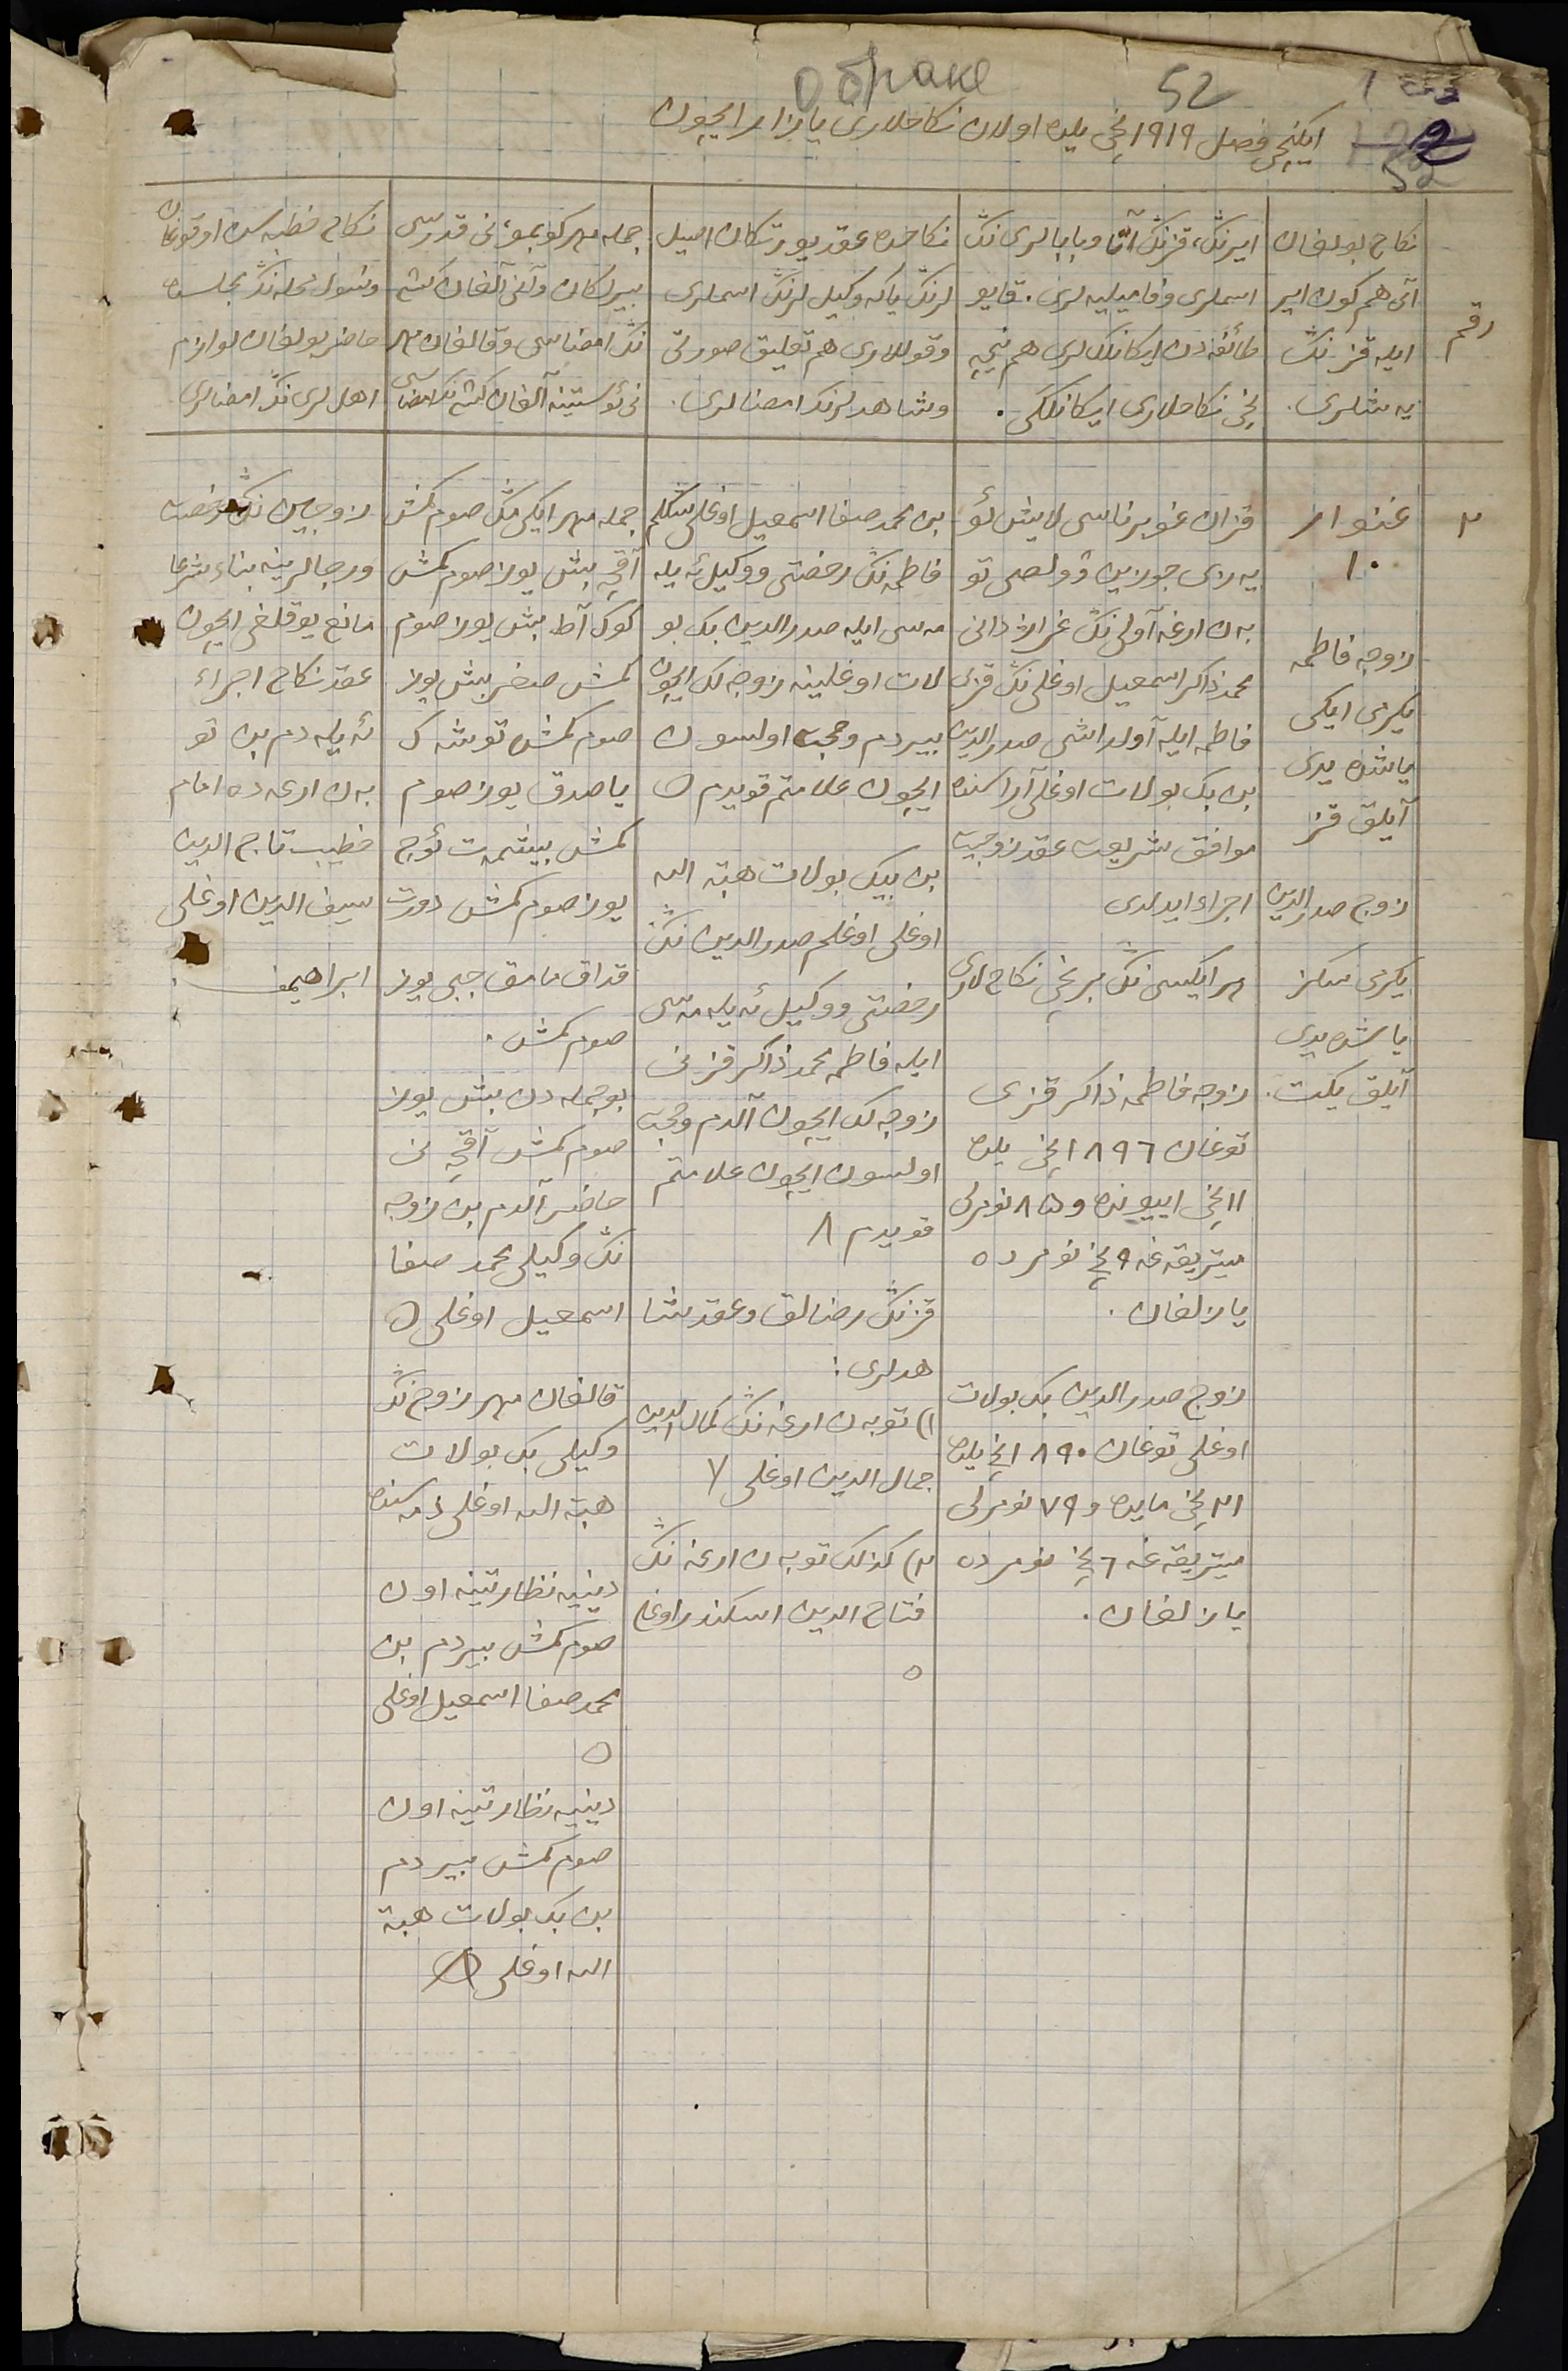 о браке
52
ایکنچی فصل ۱۹۱۹نچی یلده اولان نکاحلارى یازار ایچون
رقم
نکاح بولغان
آى هم کون ایر
ایله قزننڭ
یه شلری.
ایرننڭ، قزننڭ آتا وبابالرى ننڭ
اسملرى وفامیلیه لرى. قایو
طائفه دن ایکانلکلرى هم نیچه
نچى نکاحلارى ایکانلکى.
نکاحده عقد یورتکان اصیل
لرننڭ یاکه وکیل لرننڭ اسملرى
وقوللارى هم تعلیق صورتى
وشاهدلرننڭ امضالرى.
جمله مهر کوبمو نى قدرسى
بیرلکان وآنى آلغان کشى
ننڭ امضاسى وقالغان مهر
نى ئوستینه آلغان کشى ننڭ امضاسى
نکاح خطبه سن اوقوغان
وشول محله ننڭ مجلسده
حاضر بولغان لوازم
اهل لرى ننڭ امضالرى
۲
غنوار
۱۰
زوجه فاطمه
یکرمى ایکى
یاشده یدى
آیلق قز
زوج صدرالدین
یکرمى سکز
یاشده یدى
آیلق یکت.
قزان غوبرناسى لایش ئو
یه زى
به ن ارغه آولى ننڭ غراژدانى
محمد ذاکر اسمعیل اوغلى ننڭ قزى
فاطمه ایله آولداشى صدرالدین
بن بک بولات اوغلى آراسنده
موافق شریعت عقد زوجیت
اجراء ایدلدى
هر ایکیسى ننڭ برنچى نکاح لارى
زوجه فاطمه ذاکر قزى
توغان ۱۸۹٦نچى یلده
۱۱نچى ایيونده و ۸۵ نومرلى
میتریقه غه ۹ نچى نومرده
یازلغان.
زوج صدرالدین بک بولات
اوغلى توغان ۱۸۹۰نچى یلده
۲۱ نچى مایده و ۷۹ نومرلى
میتریقه غه ٦ نچى نومرده
یازلغان.
بن محمد صفا اسمعیل اوغلى سکلم
فاطمه ننڭ رخصتى ووکیل ئه یله
مه سى ایله صدرالدین بک بو
لات اوغلینه زوجه لک ایچون
بیردم وحجت اولسون
ایچون علامتم قویدم ۵
بن بیک بولات هبة الله
اوغلى اوغلم صدرالدین ننڭ
رخصتى ووکیل ئه یله مه سى
ایله فاطمه محمد ذاکر قزنى
زوجه لک ایچون آلدم وحجت
اولسون ایچون علامتم
قویدم ۸
قزننڭ رضالق وعقد شا
هدلرى:
۱) توبه ن ارغه ننڭ کمال الدین
جمال الدین اوغلى ۷
۲) کذلک توبه ن ارغه ننڭ
فتاح الدین اسکندر اوغلى
۵
جمله مهر ایکى منڭ صوم کمش
آقچه بیش یوز صوم کمش
کوک آط بیش یوز صوم
کمش صغر بیش یوز
صوم کمش توشه ک
یاصدق یوز صوم
کمش بیشمه ت ئوچ
یوز صوم کمش دورت
قداق مامق جیى یوز
صوم کمش.
بو جمله دن بیش یوز
صوم کمش آقچه نى
حاضر آلدم بن زوجه
ننڭ وکیلى محمد صفا
اسمعیل اوغلى ۵
قالغان مهر زوج ننڭ
وکیلى بک بولات
هبة الله اوغلى ذمه سنده
دینیه نظارتینه اون
صوم کمش بیردم بن
محمد صفا اسمعیل اوغلى
۵
دینیه نظارتینه اون
صوم کمش بیردم
بن بک بولات هبة
الله اوغلى ۸
زوجین ننڭ رخصت
ورجالرینه بناء شرعا
مانع یوقلغى ایچون
عقد نکاح اجراء
ئه یله دم بن تو
به ن ارغه ده امام
خطیب تاج الدین
سیف الدین اوغلى
ابراهیمف